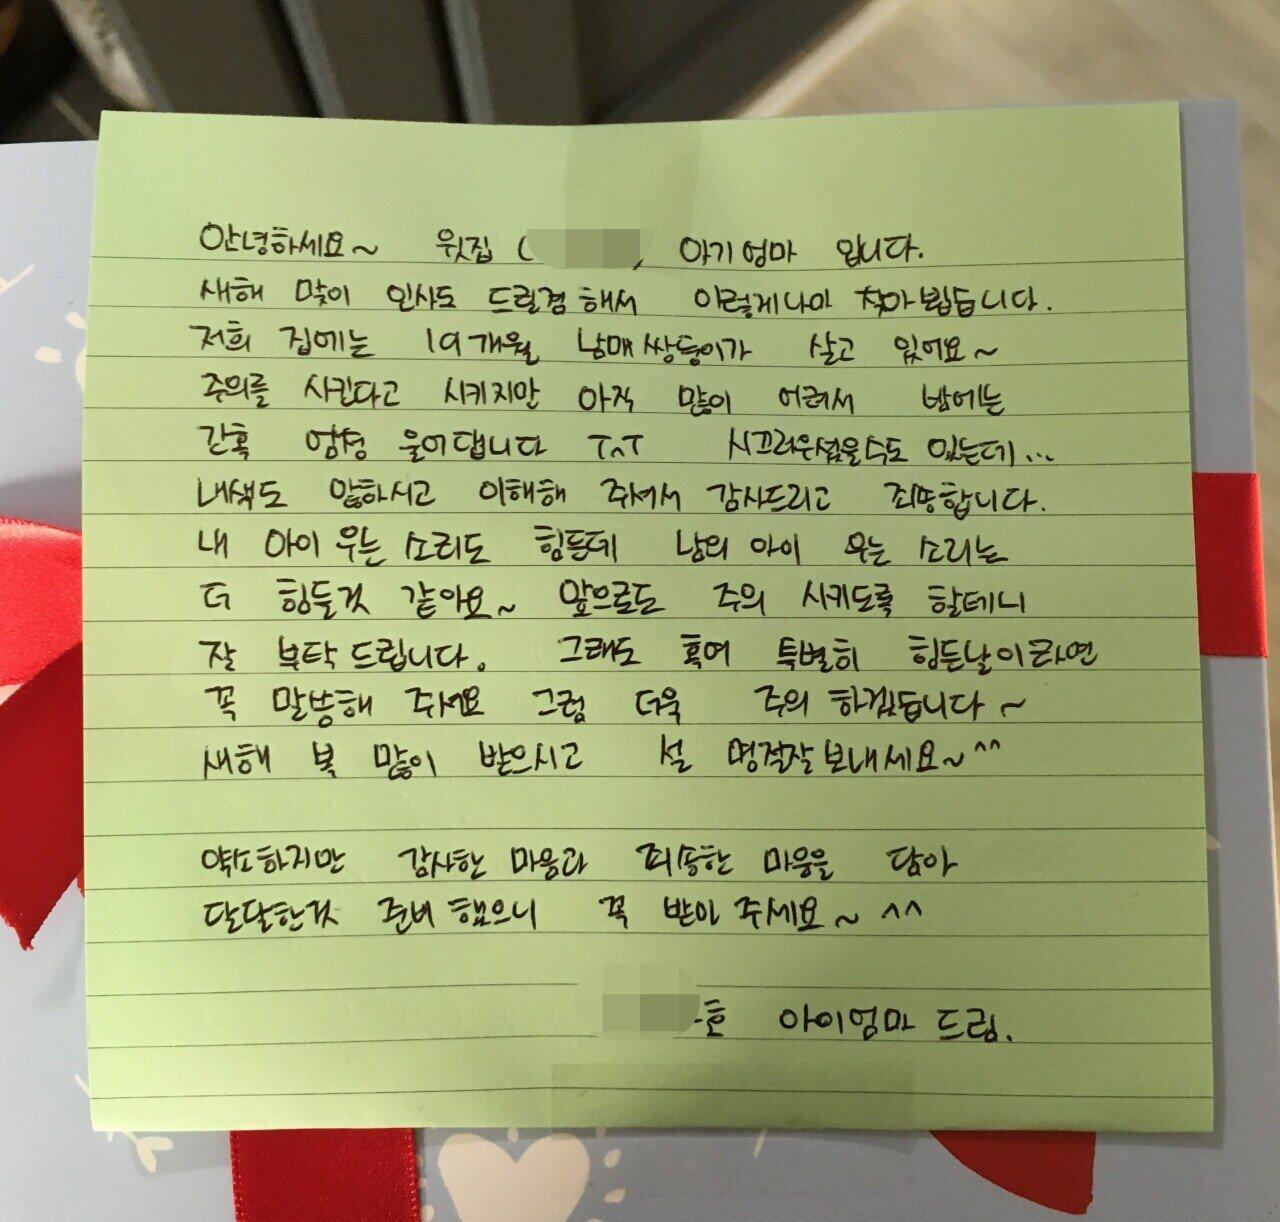 안녕하세요~ 윗집 ( ) 아기엄마 입니다.
새해 맞이 인사도 드릴겸 해서 이렇게나마 찾아뵙습니다.
저희 집에는 19개월 남매쌍둥이가 살고 있어요~
주의를 시킨다고 시키지만 아직 많이 어려서 밤에는
간혹 엄청 울어댑니다 T^T 시끄러우셨을수도 있는데...
내색도 않하시고 이해해 주셔서 감사드리고 죄송합니다.
내 아이 우는 소리도 힘든데 남의 아이 우는 소리는
더 힘들것 같아요~ 앞으로도 주의 시키도록 할테니
잘 부탁드립니다. 그래도 혹여 특별히 힘든날이라면
꼭 말씀해 주세요 그럼 더욱 주의 하겠습니다~
새해 복 많이 받으시고 설 명절잘보내세요~^^
약소하지만 감사한 마음과 죄송한 마음을 담아
달달한것 준비 했으니 꼭 받아 주세요~ ^^
호 아이엄마 드림.